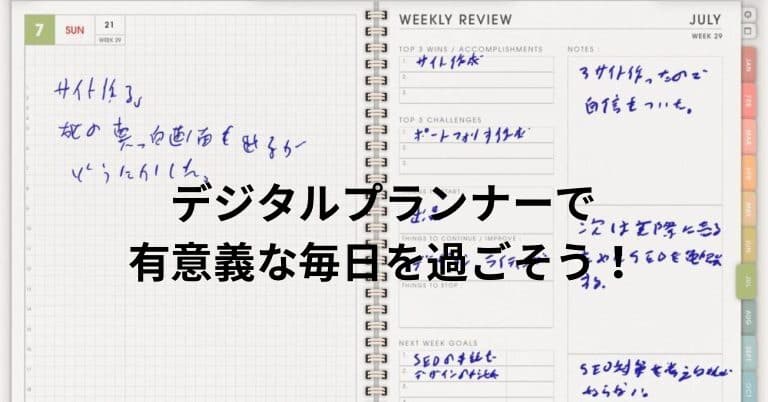 7
SUN
21
WEEK 29
サイト作る。
死の真っ白画面も出るが
どうにかした。
WEEKLY REVIEW
JULY
WEEK 29
TOP 3 WINS / ACCOMPLISHMENTS
1. サイト作成
2.
3.
NOTES :
3サイト作ったので
自信もついた。
TOP 3 CHALLENGES
1. ポートフォリオ作成
2.
3.
デジタルプランナーで
有意義な毎日を過ごそう！
次は実際に売る
ためにSEOを勉強
する。
THINGS TO CONTINUE / IMPROVE
THINGS TO STOP
NEXT WEEK GOALS
1. SEOの本読む
2.
3.
SEO対策を考えなければ
ならない。
JAN
FEB
MAR
APR
MAY
JUN
JUL
AUG
SEPT
OCT